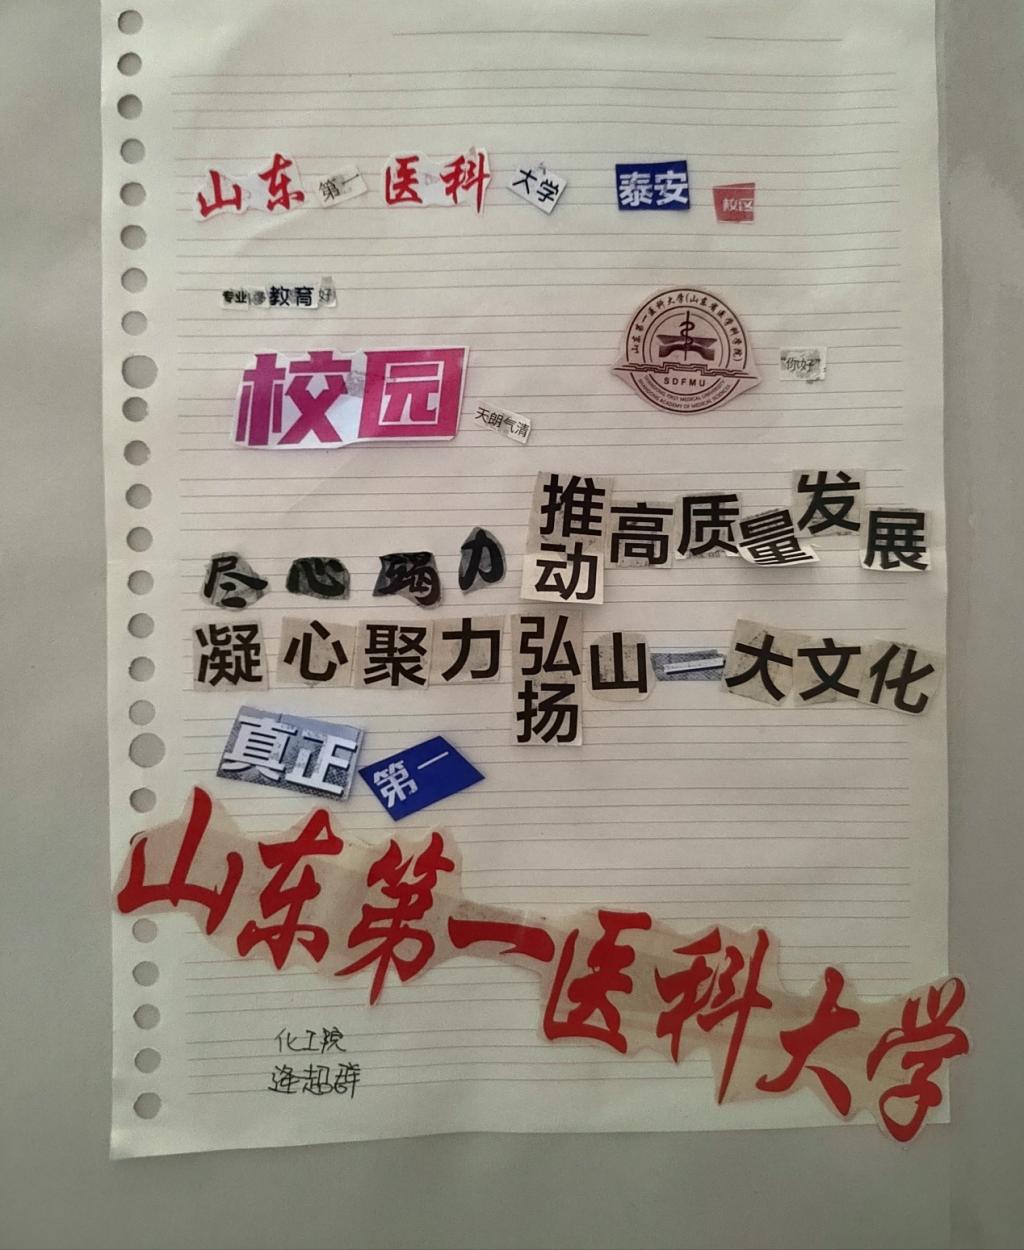 山东第一医科大学 泰安校区
专业 教育好
山东第一医科大学(山东省医学科学院)
SDFMU
SHANDONG FIRST MEDICAL UNIVERSITY
SHANDONG ACADEMY OF MEDICAL SCIENCES
"你好"
校园 天朗气清
尽心竭力推动高质量发展
凝心聚力弘扬山一大文化
真正第一
山东第一医科大学
化工院
逄超群